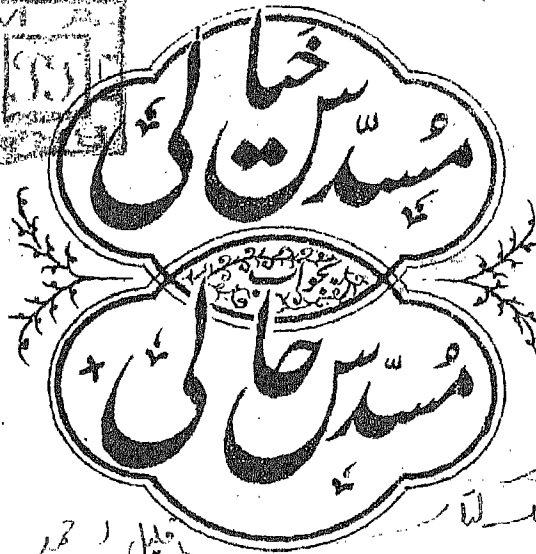 مُسدّس خیالی
بجواب
مُسدّس حالی